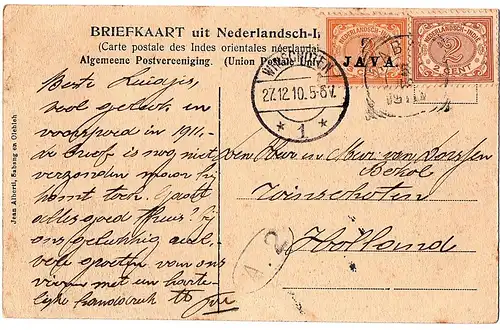 BRIEFKAART uit Nederlandsch-I
(Carte postale des Indes orientales néerlanda
Algemeene Postvereeniging. (Union Postale Uni
NEDERLANDSCH-INDIË
2
CENT
JAVA.
WINSCHOTEN
27.12.10. 5-6V.
* 1 *
Jean Alberti, Sabang en Oleh-leh
Beste Luidjes,
veel geluk en
voorspoed in 1911.
de brief is nog niet
verzonden maar hij
komt toch. Gaat
alles goed thuis? Bij
ons gelukkig wel,
vele groeten van ons
vieren met een harte-
lijke handdruk
Den Heer en Mevr. van Dorssen
Winschoten
Holland
A. 2